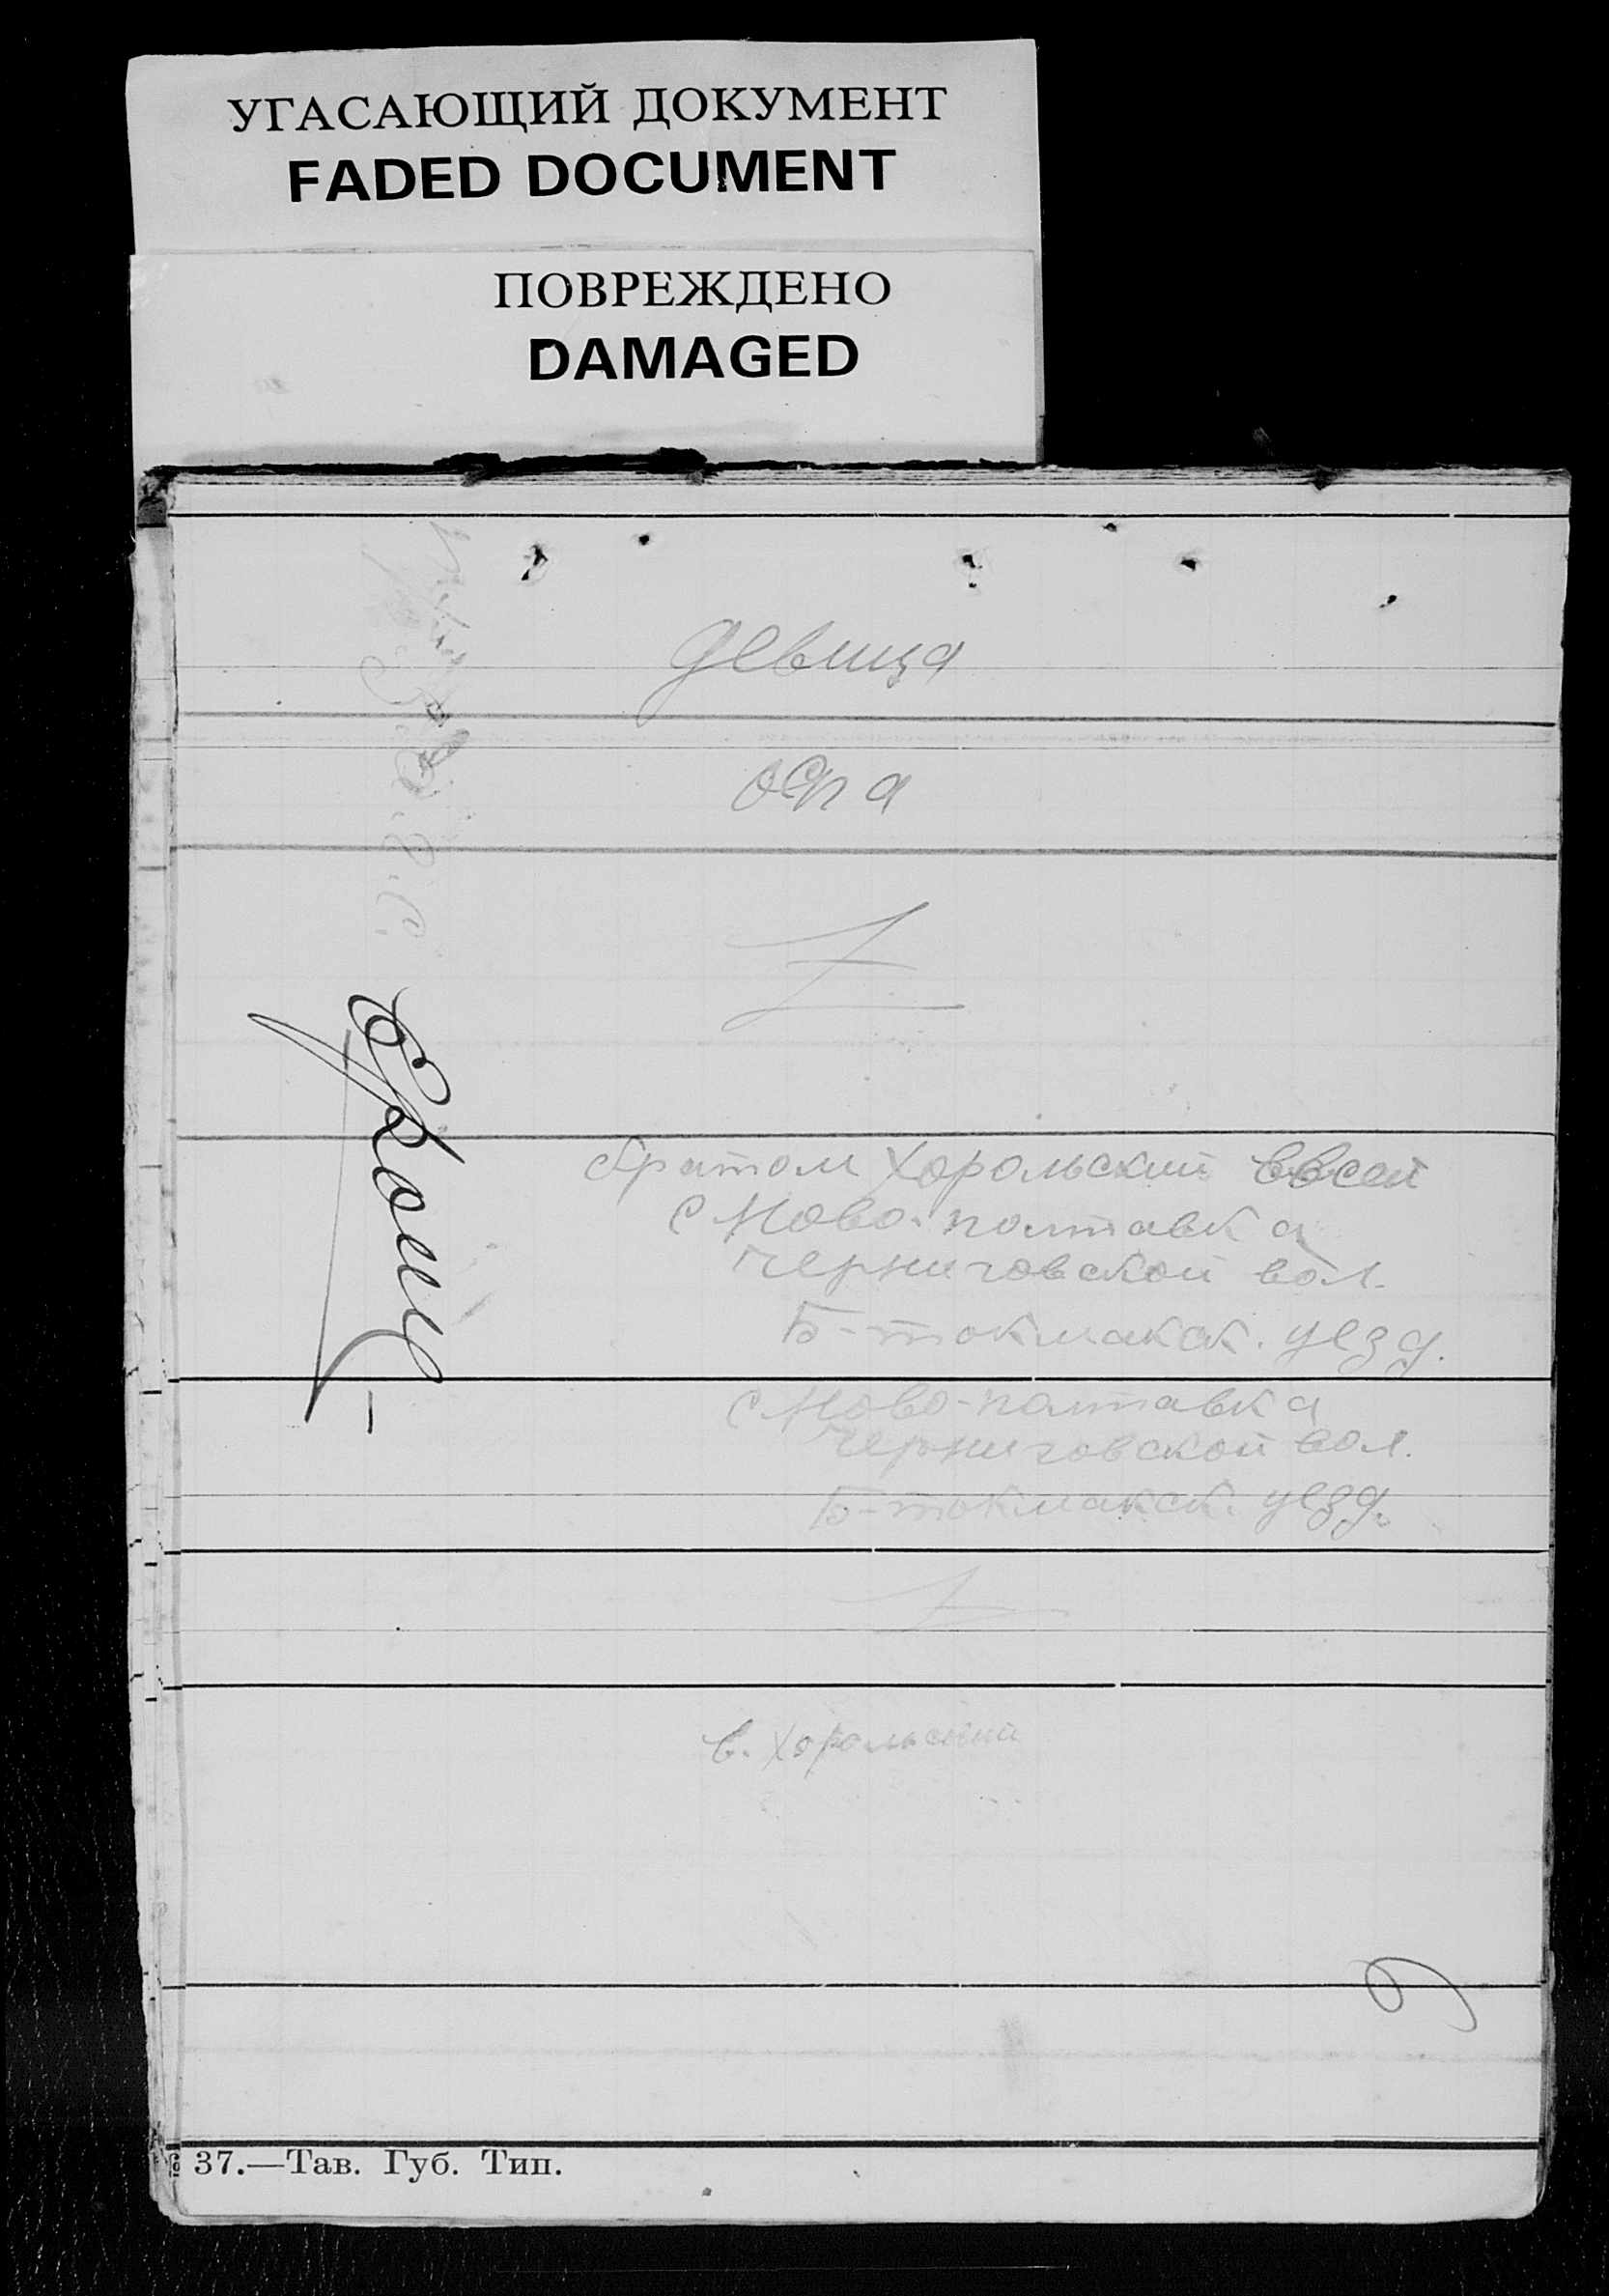 УГАСАЮЩИЙ ДОКУМЕНТ
FADED DOCUMENT
ПОВРЕЖДЕНО
DAMAGED
девица
одна
братом Хорольский Евсей
с Ново-полтавка
черниговской вол.
Б-токмакск. уезд.
с Ново-полтавка
черниговской вол.
Б-токмакск. уезд.
Е. Хорольский
37.—Тав. Губ. Тип.